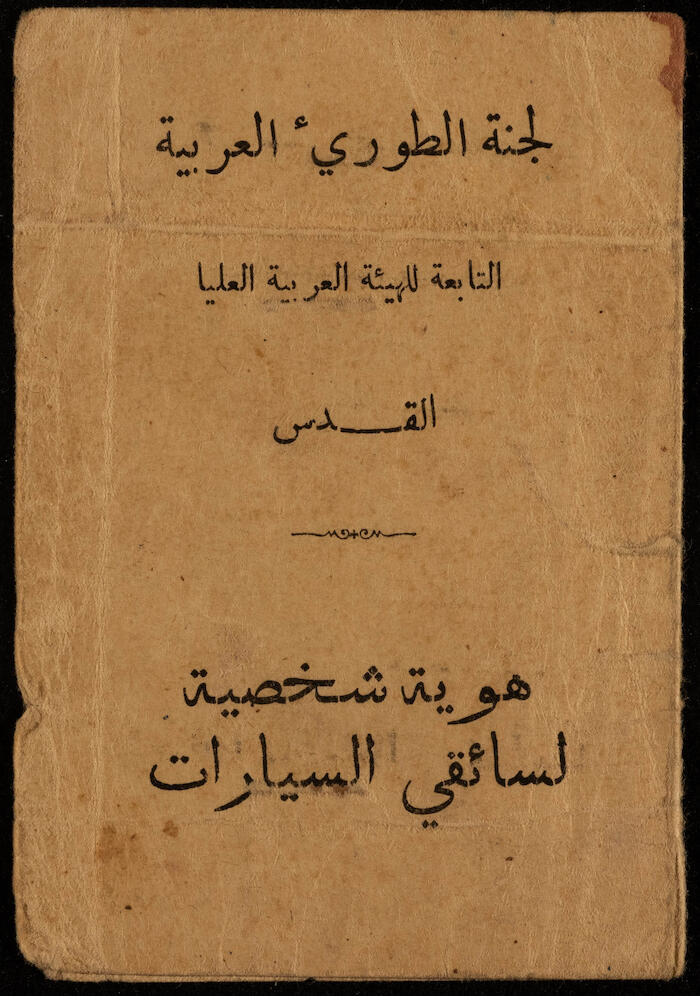 لجنة الطوريء العربية
التابعة للهيئة العربية العليا
القـــدس
هوية شخصية
لسائقي السيارات